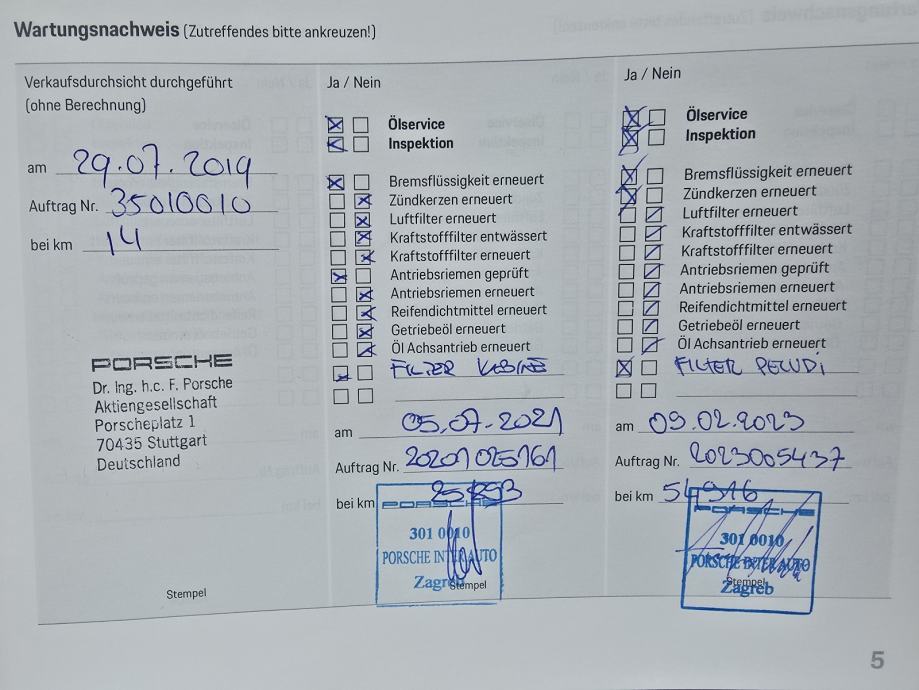 Wartungsnachweis (Zutreffendes bitte ankreuzen!)
Verkaufsdurchsicht durchgeführt
(ohne Berechnung)
am 29.07.2019
Auftrag Nr. 35010010
bei km 14
PORSCHE
Dr. Ing. h.c. F. Porsche
Aktiengesellschaft
Porscheplatz 1
70435 Stuttgart
Deutschland
Stempel
Ja / Nein
Ölservice
Inspektion
Bremsflüssigkeit erneuert
Zündkerzen erneuert
Luftfilter erneuert
Kraftstofffilter entwässert
Kraftstofffilter erneuert
Antriebsriemen geprüft
Antriebsriemen erneuert
Reifendichtmittel erneuert
Getriebeöl erneuert
Öl Achsantrieb erneuert
FILTER KABINE
am 05.07.2021
Auftrag Nr. 20201025161
bei km
PORSCHE
301 0010
PORSCHE INTER AUTO
Zagreb
Stempel
Ja / Nein
Ölservice
Inspektion
Bremsflüssigkeit erneuert
Zündkerzen erneuert
Luftfilter erneuert
Kraftstofffilter entwässert
Kraftstofffilter erneuert
Antriebsriemen geprüft
Antriebsriemen erneuert
Reifendichtmittel erneuert
Getriebeöl erneuert
Öl Achsantrieb erneuert
FILTER PELUDI
am 09.02.2023
Auftrag Nr. 2023005437
bei km 54916
PORSCHE
301 0010
PORSCHE INTER AUTO
Stempel
Zagreb
5